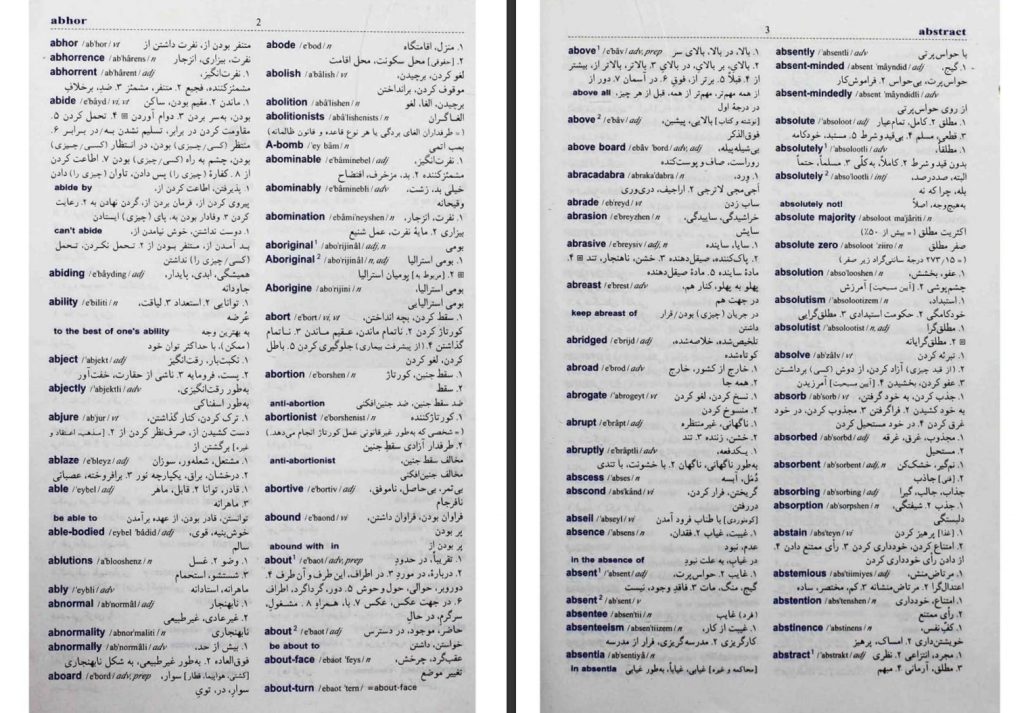 abhor
2
abhor /ab'hor/ vt متنفر بودن از، نفرت داشتن از
abhorrence /ab'hârens/ n نفرت، بیزاری، انزجار
abhorrent /ab'hârent/ adj ۱. نفرت‌انگیز،
مشمئزکننده، فجیع ۲. متنفر، مشمئز ۳. ضدِ، برخلافِ
abide /e'bâyd/ vi, vt ۱. ماندن ۲. مقیم بودن، ساکن
بودن، به‌سر بردن ۳. دوام آوردن ⊞ ۴. تحمل کردن ۵.
مقاومت کردن در برابر، تسلیم نشدن به/در برابر ۶.
منتظرِ (کسی/چیزی) بودن، در انتظارِ (کسی/چیزی)
بودن، چشم به راهِ (کسی/چیزی) بودن ۷. اطاعت کردن
از ۸. کفارهٔ (چیزی را) پس دادن، تاوان (چیزی را) دادن
abide by ۱. پذیرفتن، اطاعت کردن از،
پیروی کردن از، فرمان بردن از، گردن نهادن به ۲. رعایت
کردن ۳. وفادار بودن به، پای (چیزی) ایستادن
can't abide ۱. دوست نداشتن، خوش نیامدن از،
بد آمدن از، متنفر بودن از ۲. تحمل نکردن، تحملِ
(کسی/چیزی را) نداشتن
abiding /e'bâyding/ adj همیشگی، ابدی، پایدار،
جاودانه
ability /e'biliti/ n ۱. توانایی ۲. استعداد ۳. لیاقت،
عُرضه
to the best of one's ability به بهترین وجهِ
(ممکن)، با حداکثر توان خود
abject /'abjekt/ adj ۱. نکبت‌بار، رقت‌انگیز
۲. پست، فرومایه ۳. ناشی از حقارت، خفت‌آور
abjectly /'abjektli/ adv به‌طور رقت‌انگیزی،
به‌طور اسفناکی
abjure /ab'jur/ vt ۱. ترک کردن، کنار گذاشتن،
دست کشیدن از، صرف‌نظر کردن از ۲. [مذهب، اعتقاد و
غیره] برگشتن از
ablaze /e'bleyz/ adj ۱. مشتعل، شعله‌ور، سوزان
۲. درخشان، براق، یکپارچه نور ۳. برافروخته، عصبانی
able /'eybel/ adj ۱. قادر، توانا ۲. قابل، ماهر
۳. ماهرانه
be able to توانستن، قادر بودن، از عهده برآمدن
able-bodied /eybel 'bâdid/ adj خوش‌بنیه، قوی،
سالم
ablutions /a'blooshenz/ n ۱. وضو ۲. غسل
۳. شستشو، استحمام
ably /'eybli/ adv ماهرانه، استادانه
abnormal /ab'normâl/ adj ۱. نابهنجار
۲. غیرعادی، غیرطبیعی
abnormality /abnor'maliti/ n نابهنجاری
abnormally /ab'normâli/ adv ۱. بیش از حد،
فوق‌العاده ۲. به‌طور غیرطبیعی، به شکل نابهنجاری
aboard /e'bord/ adv, prep [کشتی، هواپیما، قطار] سوارِ،
سوارِ، در، تویِ
abode /e'bod/ n ۱. منزل، اقامتگاه
۲. [حقوقی] محل سکونت، محل اقامت
abolish /a'bâlish/ vt لغو کردن، برچیدن،
موقوف کردن، برانداختن
abolition /abâ'lishen/ n برچیدن، الغا، لغو
abolitionists /abâ'lishenists/ n الغاگران
(= طرفداران الغای بردگی یا هر نوع قاعده و قانون ظالمانه)
A-bomb /'ey bâm/ n بمب اتمی
abominable /e'bâminebel/ adj ۱. نفرت‌انگیز،
مشمئزکننده ۲. بد، مزخرف، افتضاح
abominably /e'bâminebli/ adv خیلی بد، زشت،
وقیحانه
abomination /ebâmi'neyshen/ n ۱. نفرت، انزجار،
بیزاری ۲. مایهٔ نفرت، عمل شنیع
Aboriginal¹ /abo'rijinâl/ adj, n بومی
Aboriginal² /abo'rijinâl/ n, adj ۱. بومی استرالیا
⊞ ۲. [مربوط به] بومیان استرالیا
Aborigine /abo'rijini/ n بومی استرالیا،
بومی استرالیایی
abort /e'bort/ vi, vt ۱. سقط کردن، بچه انداختن،
کورتاژ کردن ۲. ناتمام ماندن، عقیم ماندن ۳. ناتمام
گذاشتن ۴. (از پیشرفت بیماری) جلوگیری کردن ۵. باطل
کردن، لغو کردن
abortion /e'borshen/ n ۱. سقط جنین، کورتاژ
۲. سقط
anti-abortion ضد سقط جنین، ضد جنین‌افکنی
abortionist /e'borshenist/ n ۱. کورتاژکننده
(= شخصی که به‌طور غیرقانونی عمل کورتاژ انجام می‌دهد.)
۲. طرفدار آزادی سقط جنین
anti-abortionist مخالف سقط جنین،
مخالف جنین‌افکنی
abortive /e'bortiv/ adj بی‌ثمر، بی‌حاصل، ناموفق،
نافرجام
abound /e'baond/ vi فراوان بودن، فراوان داشتن،
پر بودن
abound with in پر بودن از
about¹ /e'baot/ adv, prep ۱. تقریباً، در حدودِ
۲. دربارهٔ، در موردِ ۳. در اطراف، این طرف و آن طرف ۴.
دوروبر، حوالی، حول‌وحوش ۵. دور، گرداگرد، اطرافِ
۶. در جهت عکس، عکس ۷. با، همراهِ ۸. مشغولِ،
سرگرمِ، در حالِ
about² /e'baot/ adj حاضر، موجود، در دسترس
be about to خواستن، داشتن
about-face /ebaot 'feys/ n عقب‌گرد، چرخش،
تغییر موضع
about-turn /ebaot 'tern/ =about-face
3
abstract
above¹ /e'bâv/ adv, prep ۱. بالا، در بالا، بالای سر
۲. بالایِ، بر بالایِ، در بالایِ ۳. بالاتر، بالاتر از، بیشتر
از ۴. قبلاً ۵. برتر از، فوقِ ۶. در آسمان ۷. دور از
above all از همه مهم‌تر، مهم‌تر از همه، قبل از هر چیز،
در درجهٔ اول
above² /e'bâv/ adj [نوشته و کتاب] بالایی، پیشین،
فوق‌الذکر
above board /ebâv 'bord/ adv, adj بی‌شیله‌پیله،
روراست، صاف و پوست‌کنده
abracadabra /abraka'dabra/ n ۱. وِرد،
اَجی‌مجی لاترجی ۲. اراجیف، دری‌وری
abrade /eb'reyd/ vt ساب زدن
abrasion /eb'reyzhen/ n خراشیدگی، ساییدگی،
سایش
abrasive /eb'reysiv/ adj, n ۱. سایا، ساینده
۲. پاک‌کننده، صیقل‌دهنده ۳. خشن، ناهنجار، تند ⊞ ۴.
مادهٔ ساینده ۵. مادهٔ صیقل‌دهنده
abreast /eb'rest/ adv پهلو به پهلو، کنار هم،
در جهت هم
keep abreast of در جریانِ (چیزی) بودن/قرار
داشتن
abridged /eb'rijd/ adj تلخیص‌شده، خلاصه‌شده،
کوتاه‌شده
abroad /eb'rod/ adv ۱. خارج از کشور، خارج
۲. همه جا
abrogate /'abrogeyt/ vt ۱. نسخ کردن، لغو کردن
۲. منسوخ کردن
abrupt /eb'râpt/ adj ۱. ناگهانی، غیرمنتظره
۲. خشن، زننده ۳. تند
abruptly /eb'râptli/ adv ۱. یکدفعه،
به‌طور ناگهانی، ناگهان ۲. با خشونت، با تندی
abscess /'abses/ n دُمَل، آبسه
abscond /abs'kând/ vi گریختن، فرار کردن،
در رفتن
abseil /'abseyl/ vi [کوهنوردی] با طناب فرود آمدن
absence /'absens/ n ۱. غیبت، غیاب ۲. فقدان،
عدم، نبود
in the absence of در غیابِ، به علت نبودِ
absent¹ /'absent/ adj ۱. غایب ۲. حواس‌پرت،
گیج، منگ، مات ۳. فاقد وجود، نیست
absent² /ab'sent/ v
absentee /absen'tii/ n (فردِ) غایب
absenteeism /absen'tiizem/ n ۱. غیبت از کار،
کارگریزی ۲. مدرسه‌گریزی، فرار از مدرسه
absentia /ab'sentiyâ/ n
in absentia [محاکمه و غیره] غیابی، غیاباً، به‌طور غیابی
absently /'absentli/ adv با حواس‌پرتی
absent-minded /absent 'mâyndid/ adj ۱. گیج،
حواس‌پرت، بی‌حواس ۲. فراموش‌کار
absent-mindedly /absent 'mâyndidli/ adv
از روی حواس‌پرتی
absolute /'absoloot/ adj ۱. مطلق ۲. کامل، تمام‌عیار
۳. قطعی، مسلم ۴. بی‌قید و شرط ۵. مستبد، خودکامه
absolutely¹ /'absolootli/ adv ۱. مطلقاً،
بدون قید و شرط ۲. کاملاً، به‌کلّی ۳. مسلماً، حتماً
absolutely² /abso'lootli/ intj البته، صددرصد،
بله، چرا که نه
absolutely not! به‌هیچ‌وجه، اصلاً
absolute majority /absoloot ma'jâriti/ n
اکثریت مطلق (= بیش از ۵۰٪)
absolute zero /absoloot 'ziiro/ n صفر مطلق
(= ۲۷۳/۱۵ درجهٔ سانتی‌گراد زیر صفر)
absolution /abso'looshen/ n ۱. عفو، بخشش،
چشم‌پوشی ۲. [آیین مسیحیت] آمرزش
absolutism /'absolootizem/ n ۱. استبداد،
خودکامگی ۲. حکومت استبدادی ۳. مطلق‌گرایی
absolutist /'absolootist/ n, adj ۱. مطلق‌گرا
⊞ ۲. مطلق‌گرایانه
absolve /ab'zâlv/ vt ۱. تبرئه کردن
۲. (از قید چیزی) آزاد کردن، از دوشِ (کسی) برداشتن
۳. عفو کردن، بخشیدن ۴. [آیین مسیحیت] آمرزیدن
absorb /ab'sorb/ vt ۱. جذب کردن، به خود گرفتن،
به خود کشیدن ۲. فراگرفتن ۳. مجذوب کردن، در خود
غرق کردن ۴. در خود مستحیل کردن
absorbed /ab'sorbd/ adj ۱. مجذوب، غرق، غرقه
۲. مستحیل
absorbent /ab'sorbent/ adj, n ۱. نم‌گیر، خشک‌کن
۲. [فنی] جاذب
absorbing /ab'sorbing/ adj جذاب، جالب، گیرا
absorption /ab'sorpshen/ n ۱. جذب ۲. شیفتگی،
دلبستگی
abstain /abs'teyn/ vi ۱. [غذا] پرهیز کردن
۲. امتناع کردن، خودداری کردن ۳. رأی ممتنع دادن ۴.
از دادن رأی خودداری کردن
abstemious /abs'tiimiyes/ adj ۱. مرتاض‌منش،
اعتدال‌گرا ۲. مرتاض‌منشانه ۳. کم، مختصر، ساده
abstention /abs'tenshen/ n ۱. امتناع، خودداری
۲. رأی ممتنع
abstinence /'abstinens/ n ۱. کفّ نفس،
خویشتن‌داری ۲. امساک، پرهیز
abstract¹ /'abstrakt/ adj ۱. مجرد، انتزاعی ۲. نظری
۳. مطلق، آرمانی ۴. مبهم